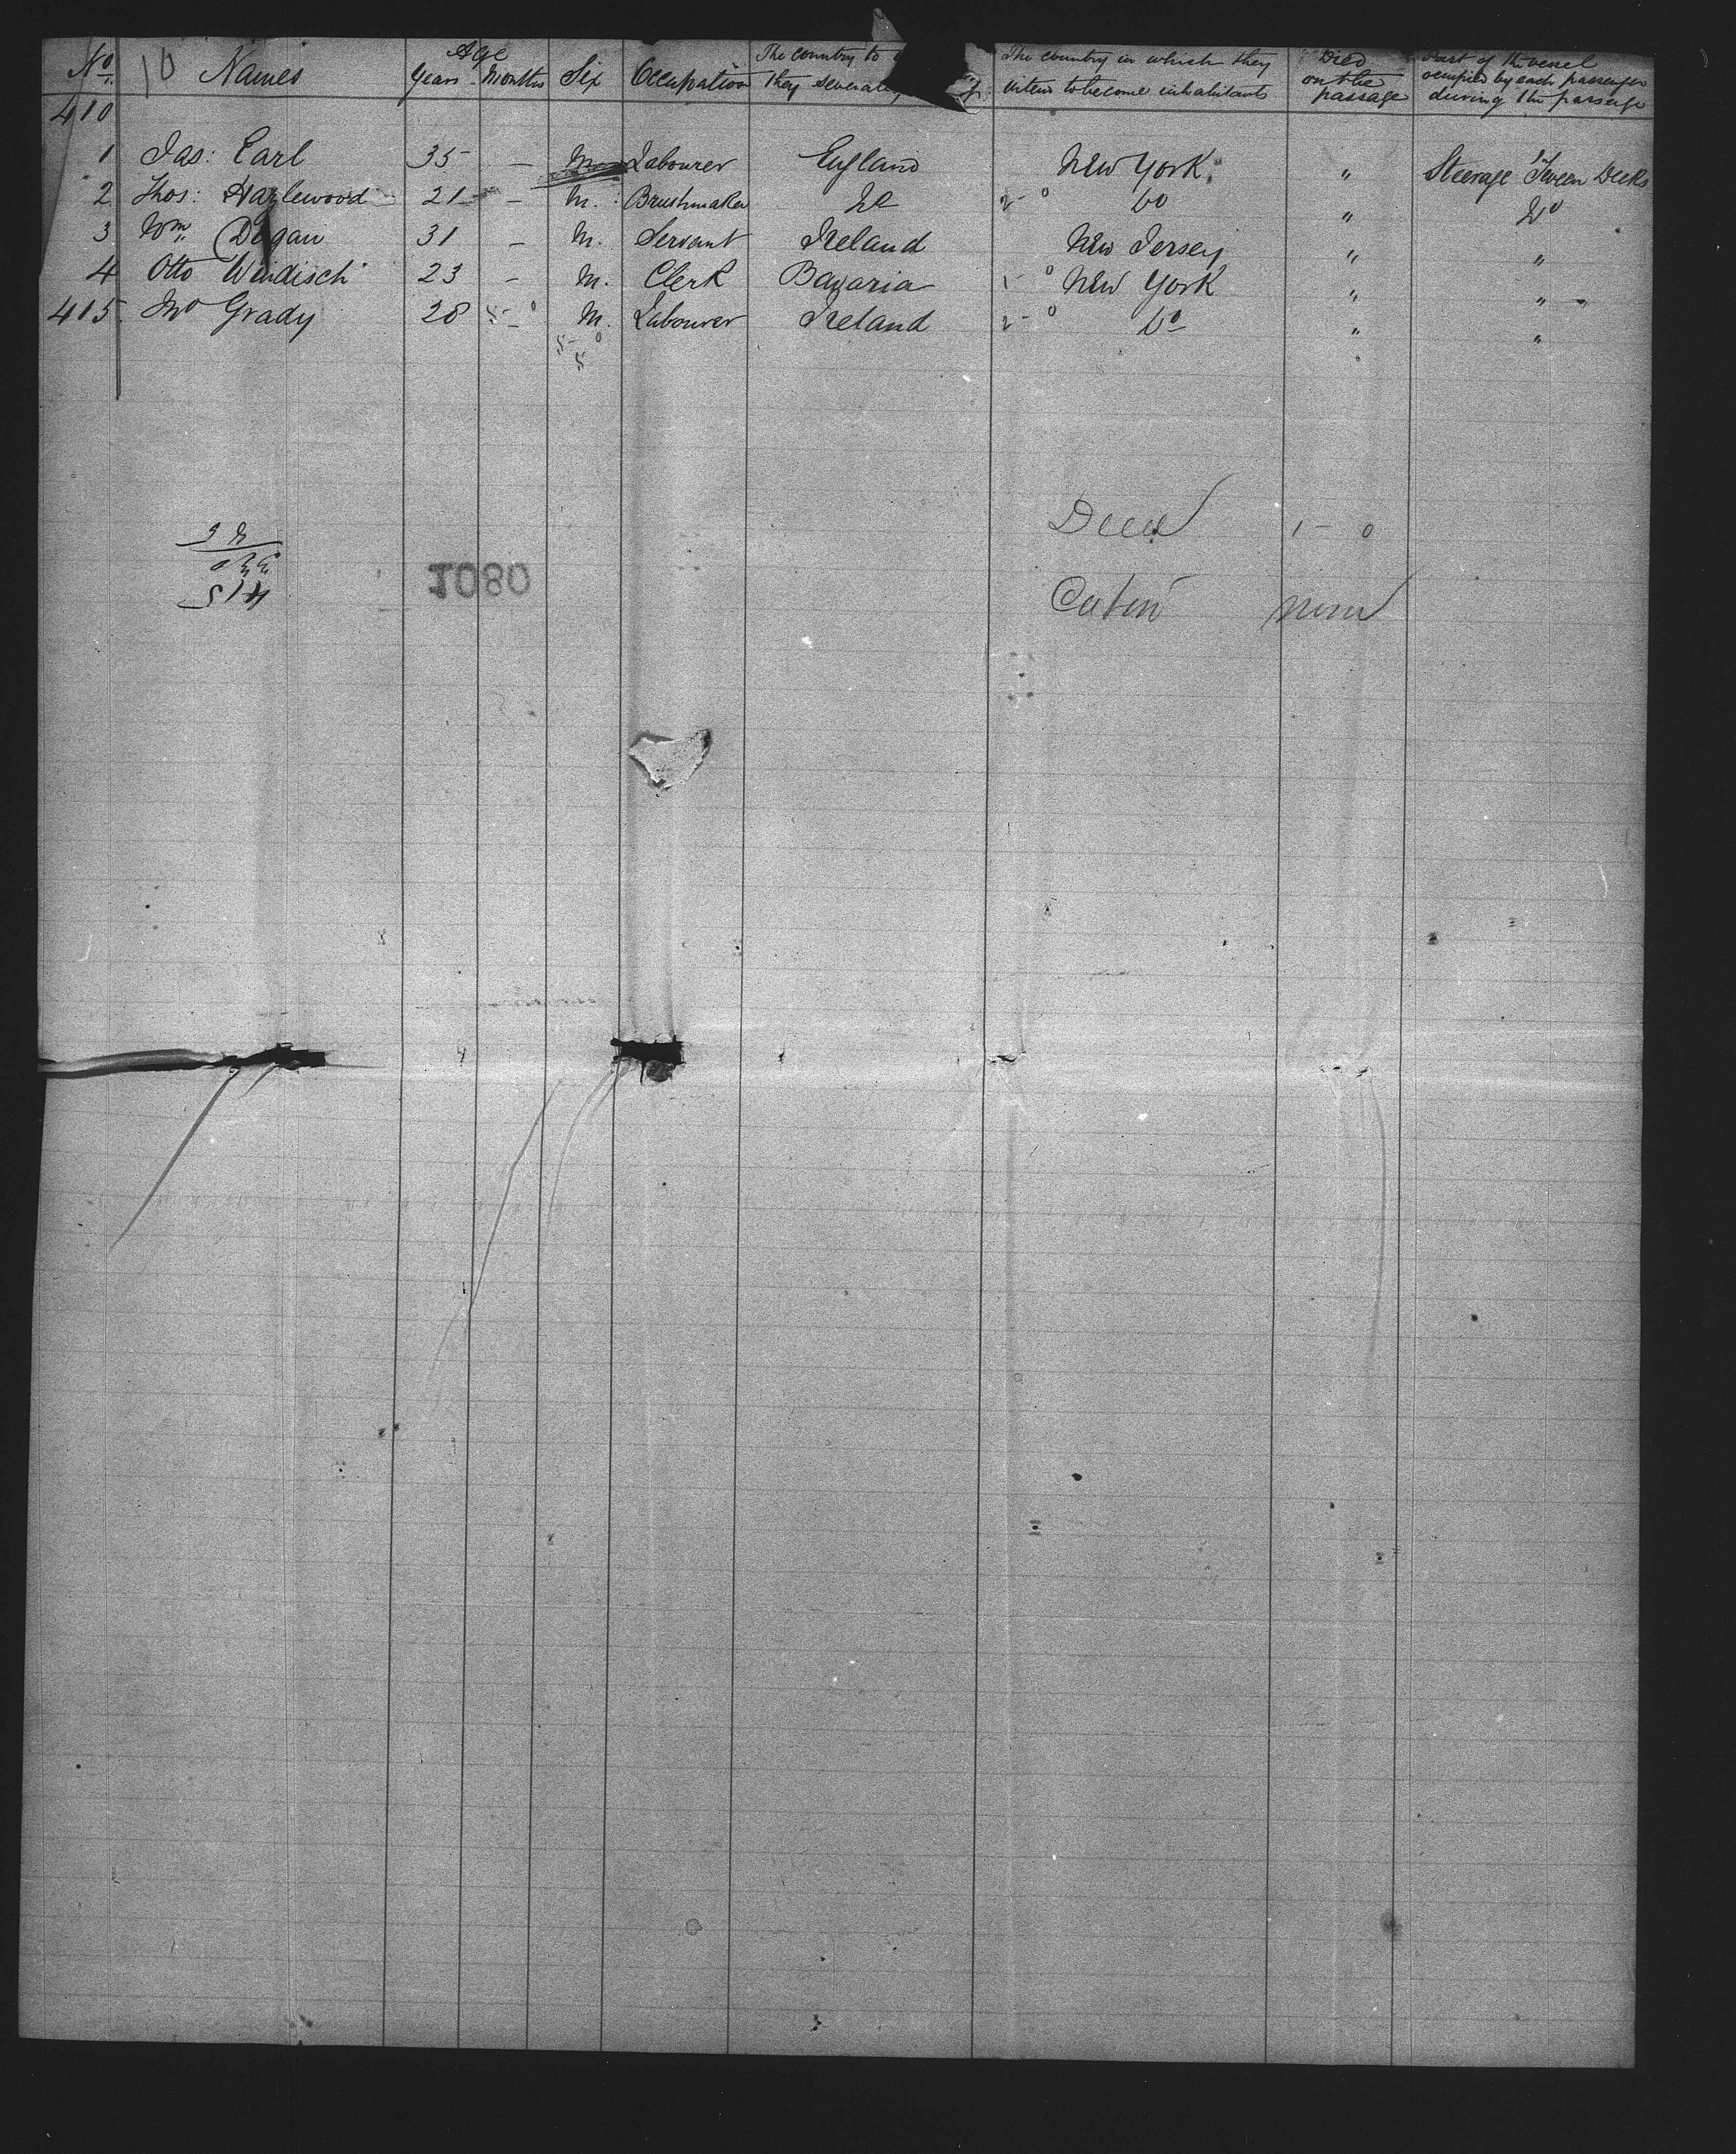 No. 10 Names Age Years Months Sex Occupation The country to they severally The country in which they intend to become inhabitants Died on the passage Part of the vessel occupied by each passenger during the passage
410
1 Jas: Earl 35 — M Labourer England New York " Steerage 'Tween Decks
2 Thos: Hazlewood 21 — M. Brushmaker Do 2-0 Do " Do
3 Wm. Dugan 31 — M. Servant Ireland New Jersey " "
4 Otto Windisch 23 — M. Clerk Bavaria 1-0 New York " "
415. Jno Grady 28 5-0 M. Labourer Ireland 2-0 Do " "
5-0
5
Died 1-0
1080
415
Cabin none